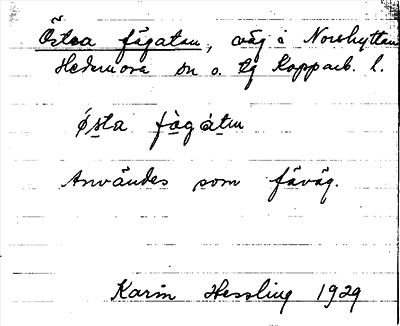 Östra fägatan, väg i Norshyttan
Hedemora sn o. tg Kopparb. l.
ǿsta fàgátạn
Användes som fäväg.
Karin Hessling 1929